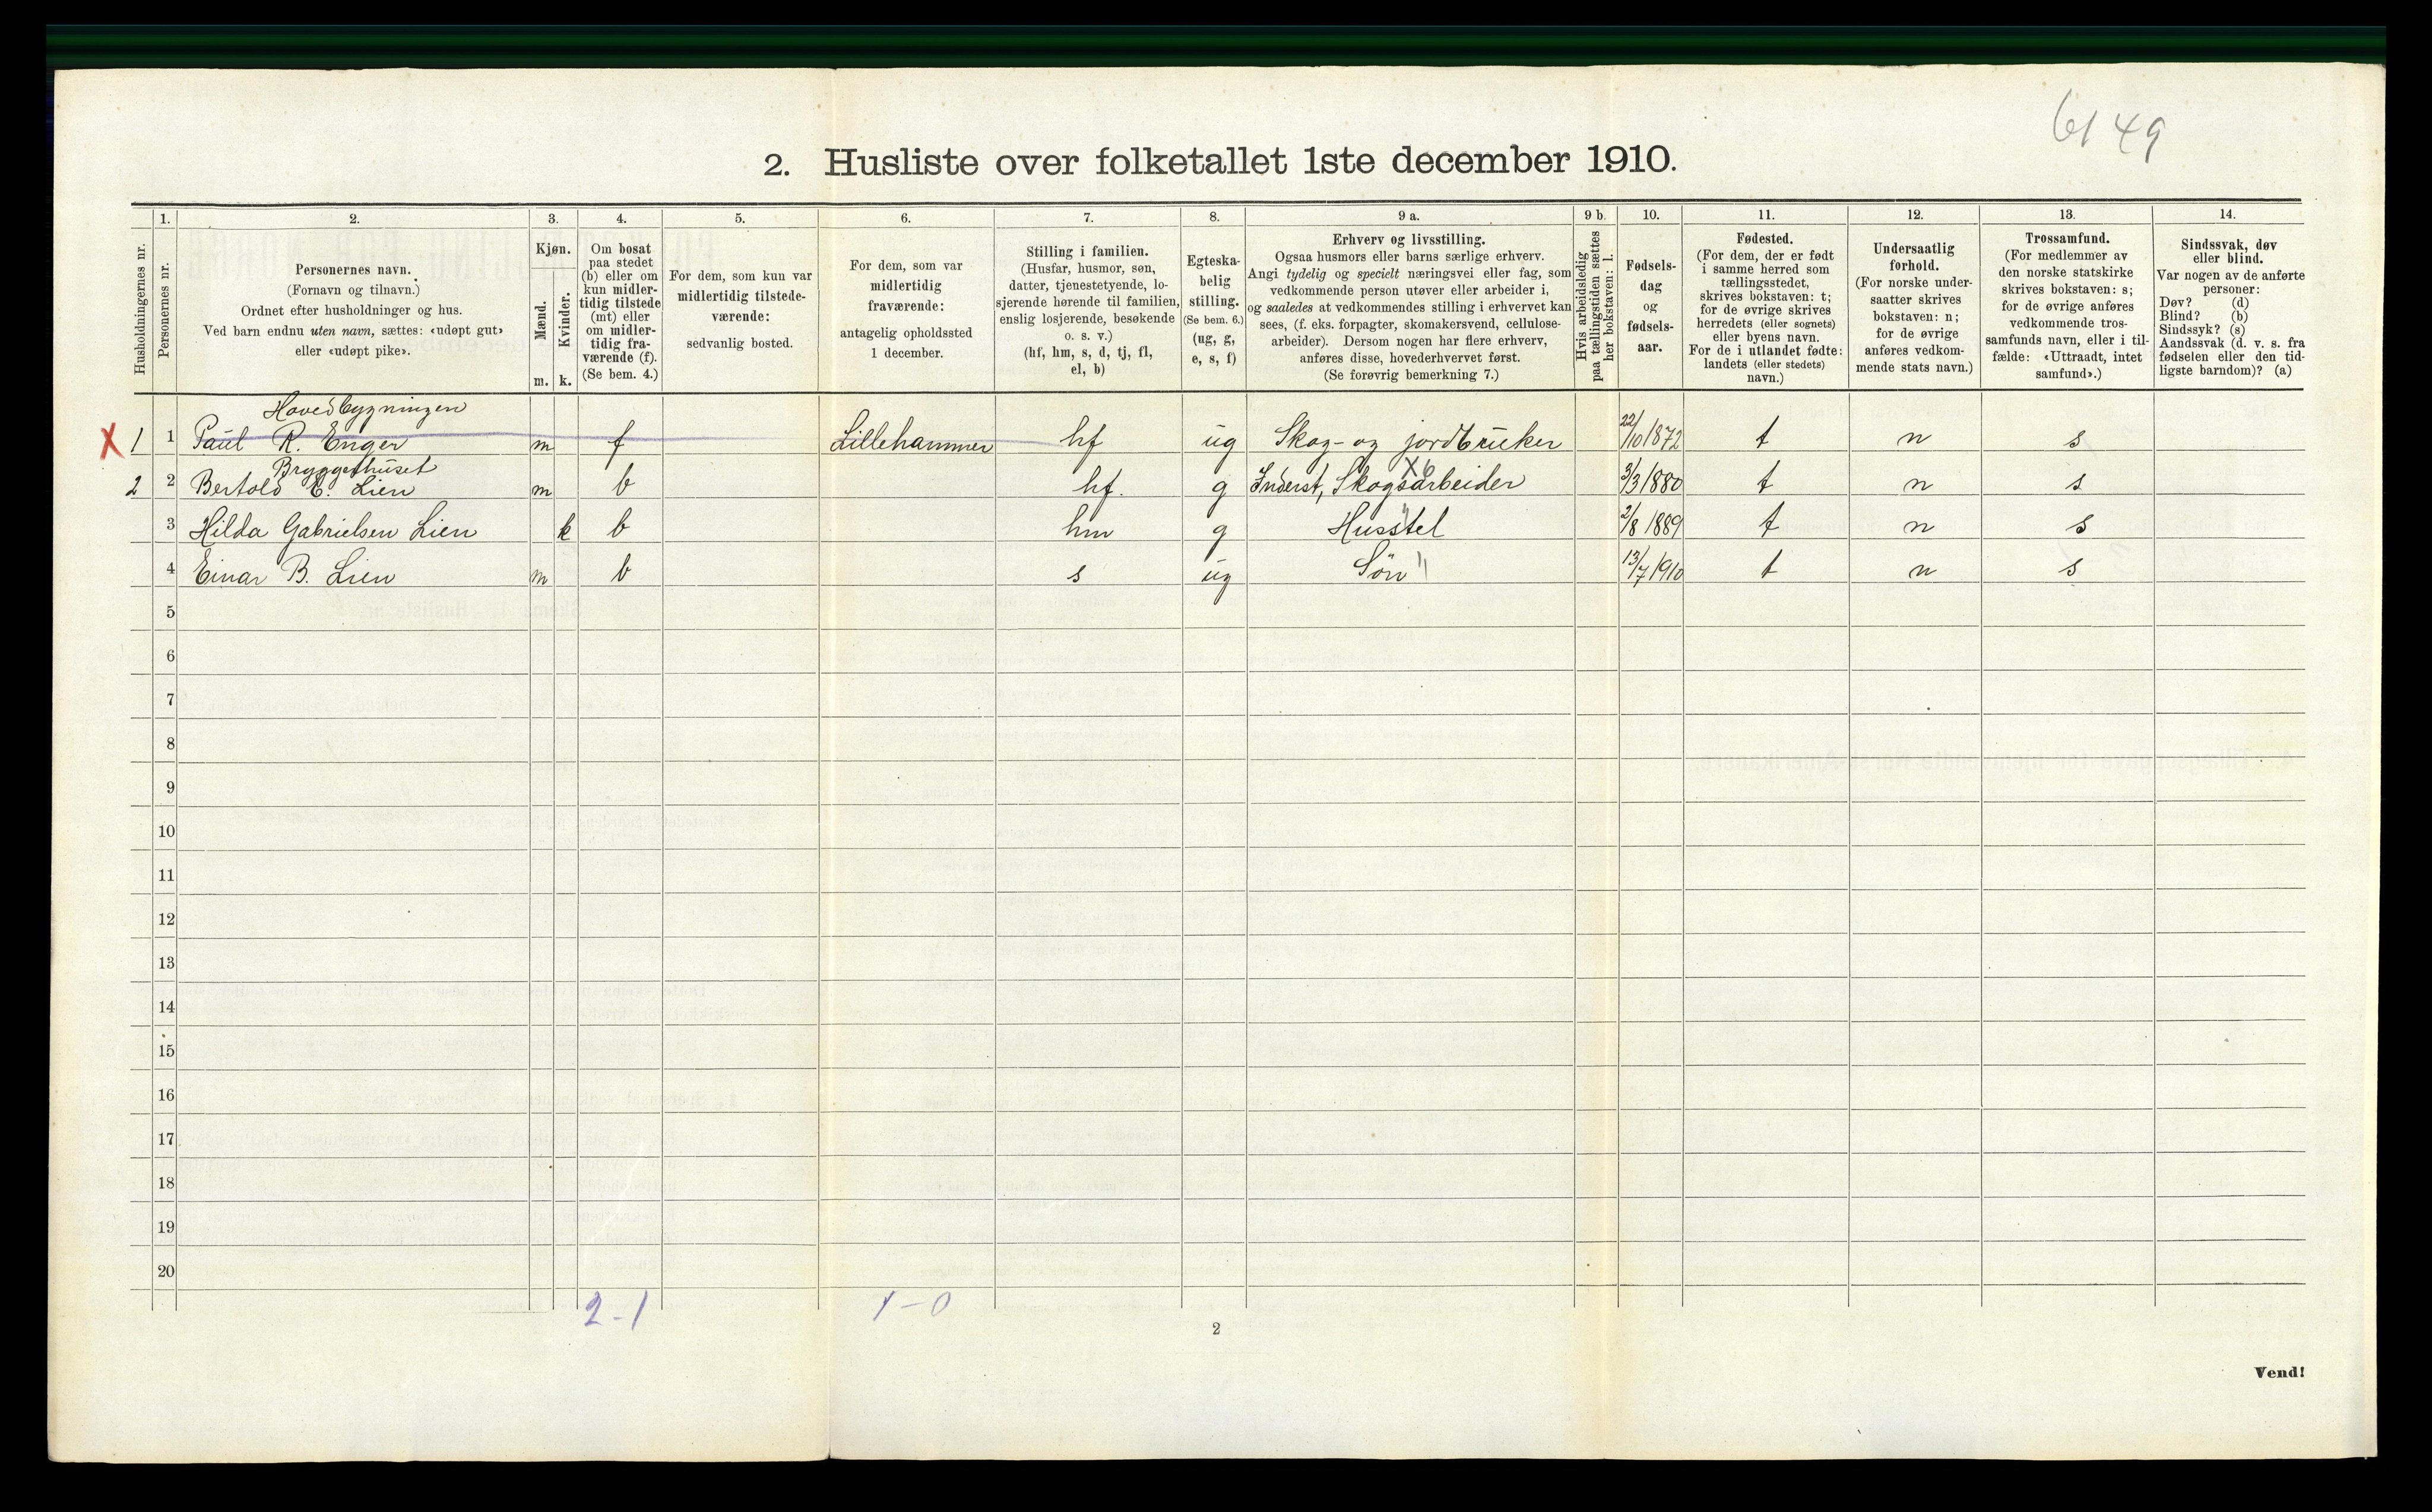 6149
2. Husliste over folketallet 1ste december 1910.
1. 2. 3. 4. 5. 6. 7. 8. 9 a. 9 b. 10. 11. 12. 13. 14.
Husholdningernes nr.
Personernes nr.
Personernes navn.
(Fornavn og tilnavn.)
Ordnet efter husholdninger og hus.
Ved barn endnu uten navn, sættes: «udøpt gut»
eller «udøpt pike».
Kjøn.
Mænd.
Kvinder.
m. k.
Om bosat
paa stedet
(b) eller om
kun midler-
tidig tilstede
(mt) eller
om midler-
tidig fra-
værende (f).
(Se bem. 4.)
For dem, som kun var
midlertidig tilstede-
værende:
sedvanlig bosted.
For dem, som var
midlertidig
fraværende:
antagelig opholdssted
1 december.
Stilling i familien.
(Husfar, husmor, søn,
datter, tjenestetyende, lo-
sjerende hørende til familien,
enslig losjerende, besøkende
o. s. v.)
(hf, hm, s, d, tj, fl,
el, b)
Egteska-
belig
stilling.
(Se bem. 6.)
(ug, g,
e, s, f)
Erhverv og livsstilling.
Ogsaa husmors eller barns særlige erhverv.
Angi tydelig og specielt næringsvei eller fag, som
vedkommende person utøver eller arbeider i,
og saaledes at vedkommendes stilling i erhvervet kan
sees, (f. eks. forpagter, skomakersvend, cellulose-
arbeider). Dersom nogen har flere erhverv,
anføres disse, hovederhvervet først.
(Se forøvrig bemerkning 7.)
Hvis arbeidsledig
paa tællingstiden sættes
her bokstaven: l.
Fødsels-
dag
og
fødsels-
aar.
Fødested.
(For dem, der er født
i samme herred som
tællingsstedet,
skrives bokstaven: t;
for de øvrige skrives
herredets (eller sognets)
eller byens navn.
For de i utlandet fødte:
landets (eller stedets)
navn.)
Undersaatlig
forhold.
(For norske under-
saatter skrives
bokstaven: n;
for de øvrige
anføres vedkom-
mende stats navn.)
Trossamfund.
(For medlemmer av
den norske statskirke
skrives bokstaven: s;
for de øvrige anføres
vedkommende tros-
samfunds navn, eller i til-
fælde: «Uttraadt, intet
samfund».)
Sindssvak, døv
eller blind.
Var nogen av de anførte
personer:
Døv? (d)
Blind? (b)
Sindssyk? (s)
Aandssvak (d. v. s. fra
fødselen eller den tid-
ligste barndom)? (a)
Hovedbygningen
X 1 1 Paul R. Enger m f Lillehammer hf ug Skog- og jordbruker 22/10 1872 t n s
Bryggerhuset X6
2 2 Bertold E. Lien m b hf. g Inderst, Skogsarbeider 3/3 1880 t n s
3 Hilda Gabrielsen Lien k b hm g Husstel 2/8 1889 t n s
4 Einar B. Lien m b s ug Søn 13/7 1910 t n s
5
6
7
8
9
10
11
12
13
14
15
16
17
18
19
20
2-1 1-0
2
Vend!